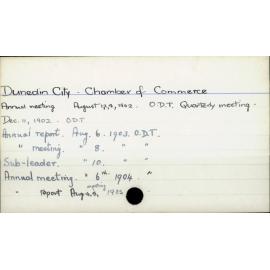 Dunedin City - Chamber of Commerce
Annual meeting August 1902. O.D.T. Quarterly meeting -
Dec. 11, 1902 - O.D.T.
Annual report. Aug. 6. 1903. O.D.T.
" meeting. " 8. " "
Sub-leader. " 10. " "
Annual meeting. " 6th 1904. "
meeting
" report Aug 1905